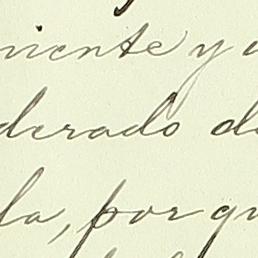 niente y a
derado de
la, por qu